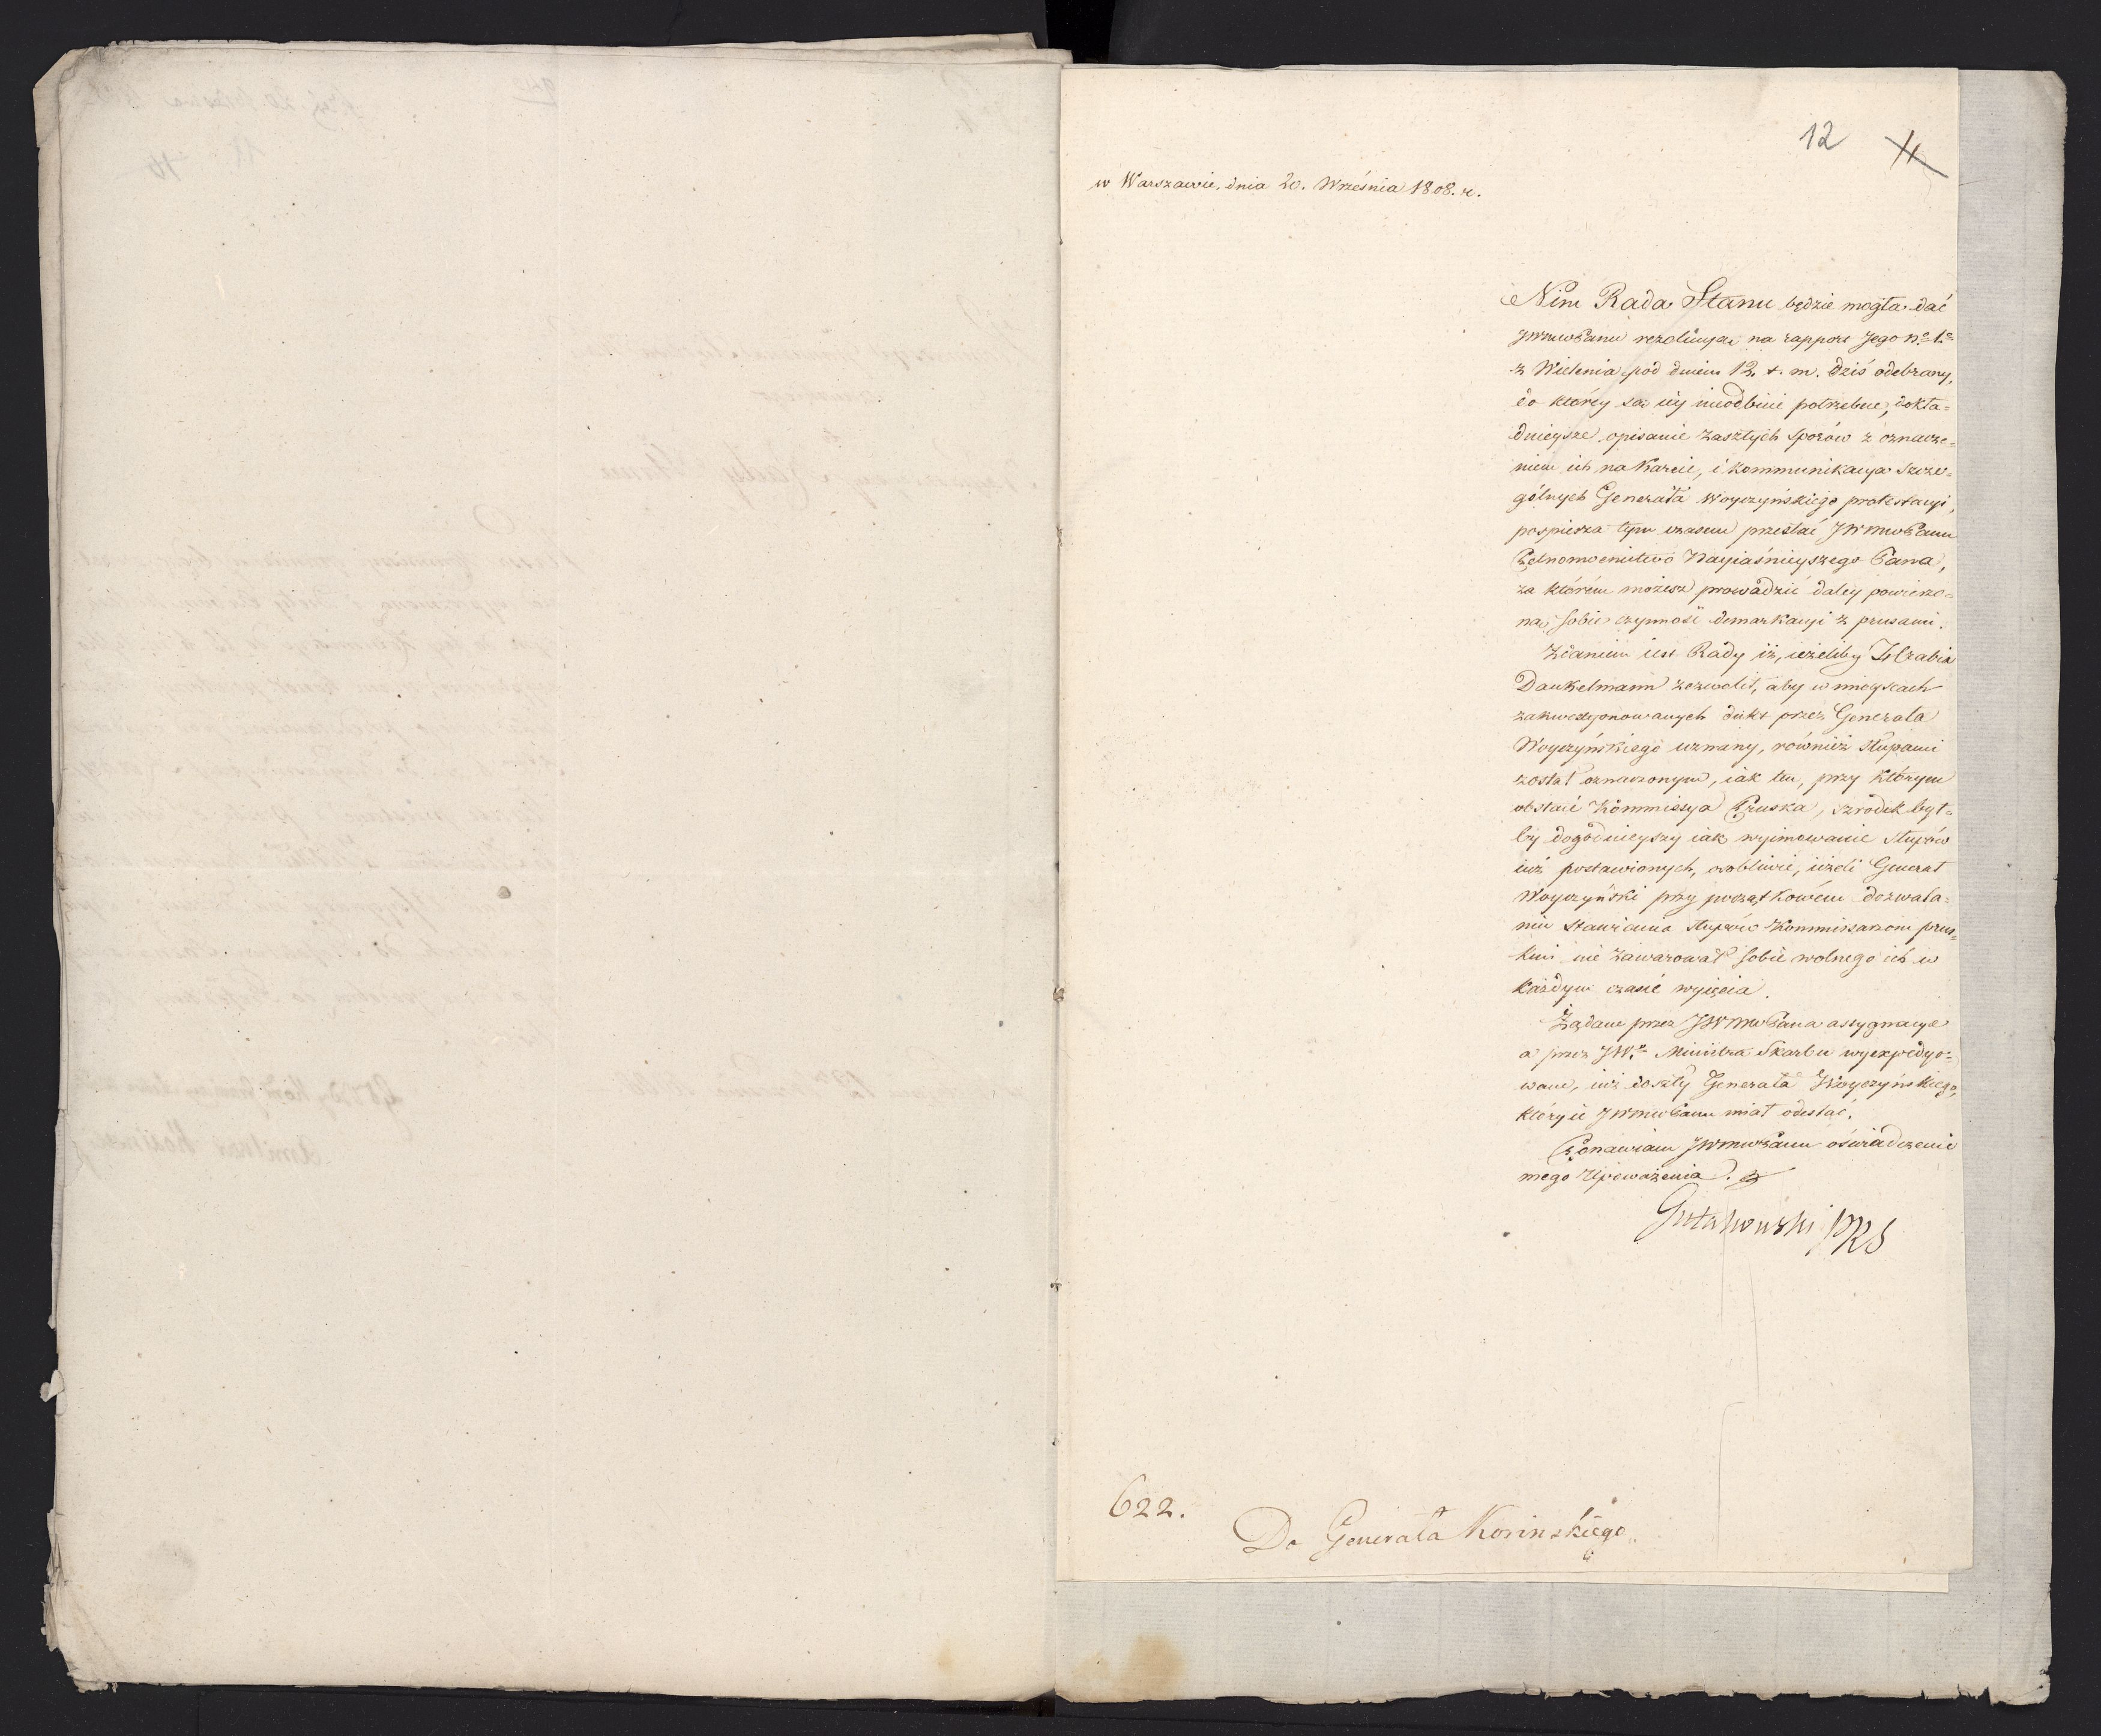 12 11
w Warszawie, dnia 20. Września 1808. r.
Nim Rada Stanu będzie mogła dać
JWmwPanu rezolucyą na rapport Jego n.º 1.º
z Wielenia pod dniem 12. t. m. dziś odebrany,
do któréy są iéy nieodbicie potrzebne, dokła=
dnieysze opisanie zaszłych sporów z oznacze=
niem ich na karcie, i kommunikacya szcze=
gólnych Generała Woyczyńskiego protestacyi,
pospiesza tym czasem przesłać JWmwPanu
Pełnomocnictwo Nayiaśnieyszego Pana,
za którém możesz prowadzić daléy powierzo=
ną sobie czynność demarkacyi z prusami.
Zdaniem iest Rady iż, ieżeliby Hrabia
Dankelmann zezwolił, aby w mieyscach
zakwestyonowanych dukt przez Generała
Woyczyńskiego uznany, również słupami
został oznaczonym, iak ten, przy którym
obstaie Kommissya Pruska, szrodek był=
by dogodnieyszy iak wyimowanie słupów
iuż postawionych, osobliwie, ieżeli Generał
Woyczyński przy początkowém dozwala=
niu stawiania słupów Kommissarzom prus=
kim nie zawarował sobie wolnego ich w
każdym czasie wyięcia.
Żądane przez JWmwPana assygnacye
a przez JW.º Ministra Skarbu wyexpedyo=
wane, iuż doszły Generała Woyczyńskiego,
który ie JWmwPanu miał odesłać.
Ponawiam JWmwPanu oświadczenie
mego Upoważenia.
Gutakowski PRS
622.
Do Generała Kosinskiego.